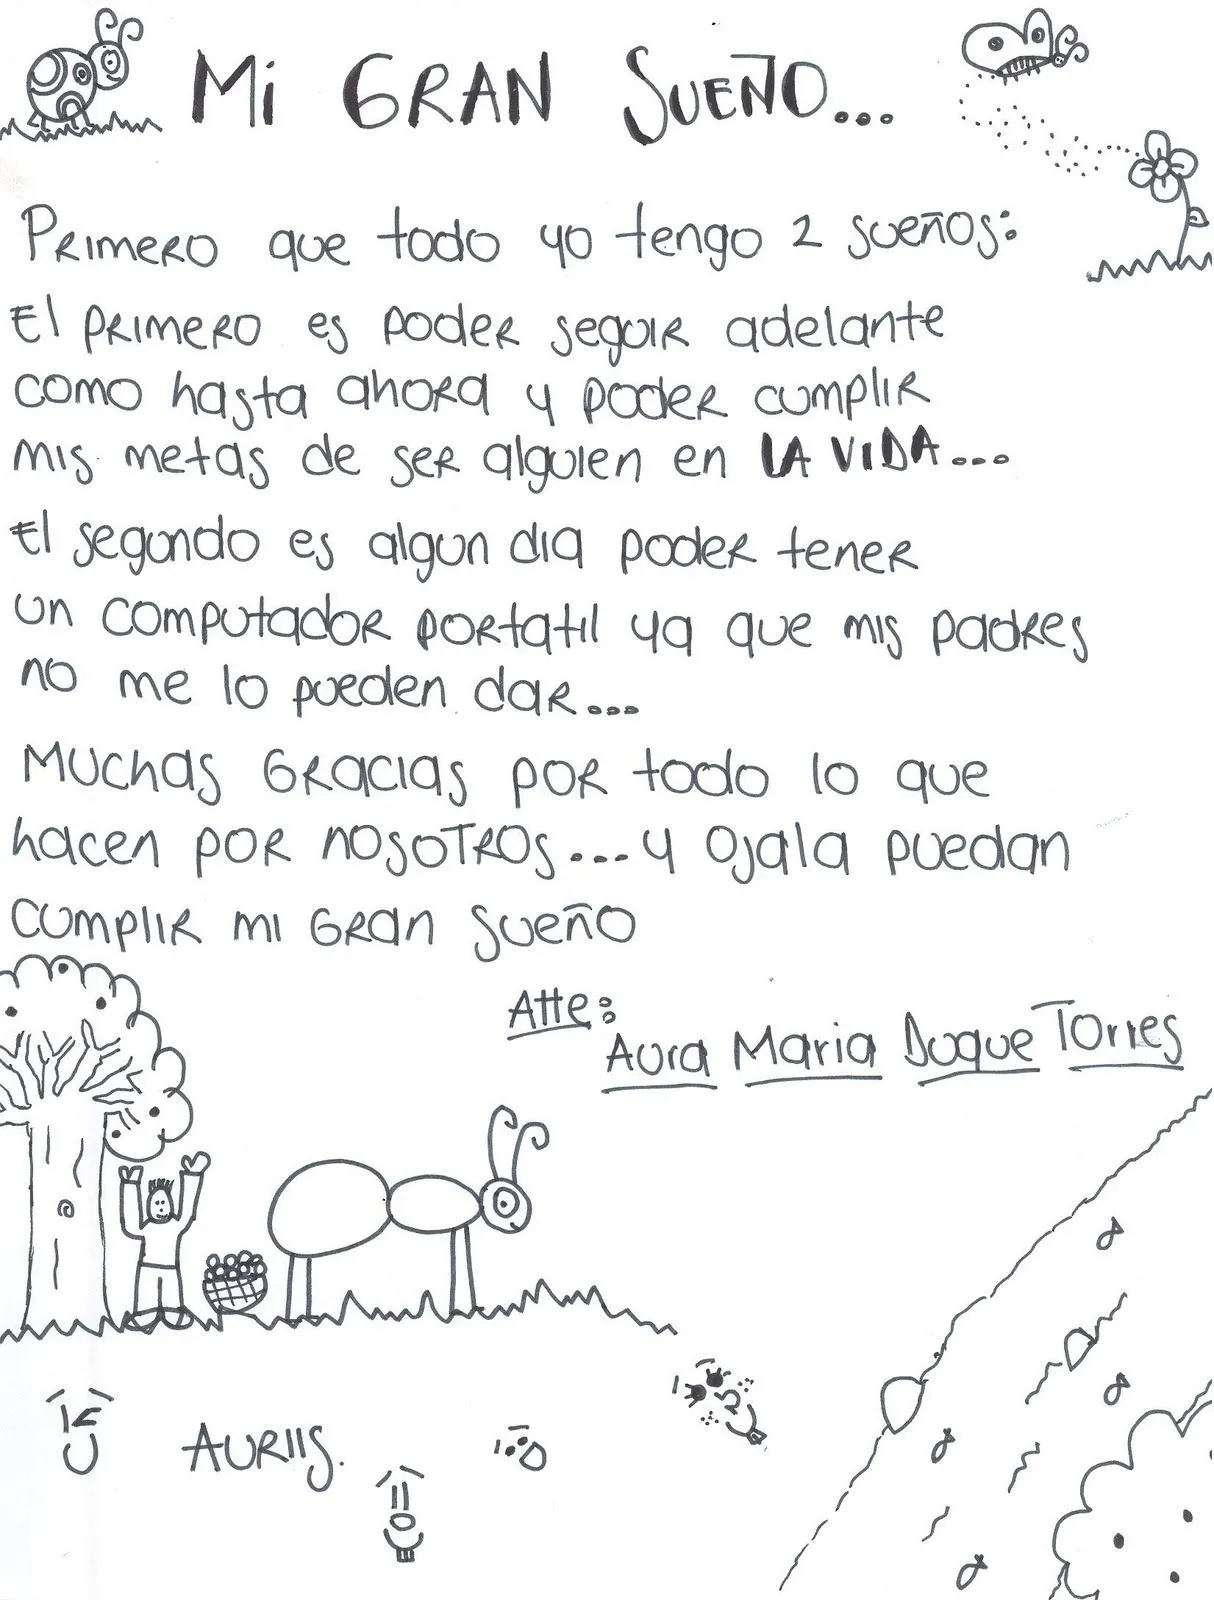 Mi GRAN SUEÑO...
Primero que todo yo tengo 2 sueños:
El primero es poder seguir adelante
como hasta ahora y poder cumplir
mis metas de ser alguien en LA VIDA...
El segundo es algun dia poder tener
un computador portatil ya que mis padres
no me lo pueden dar...
Muchas Gracias por todo lo que
hacen por nosotros...y Ojala puedan
cumplir mi Gran Sueño
Atte:
Aura Maria Duque Torres
AURIIS.